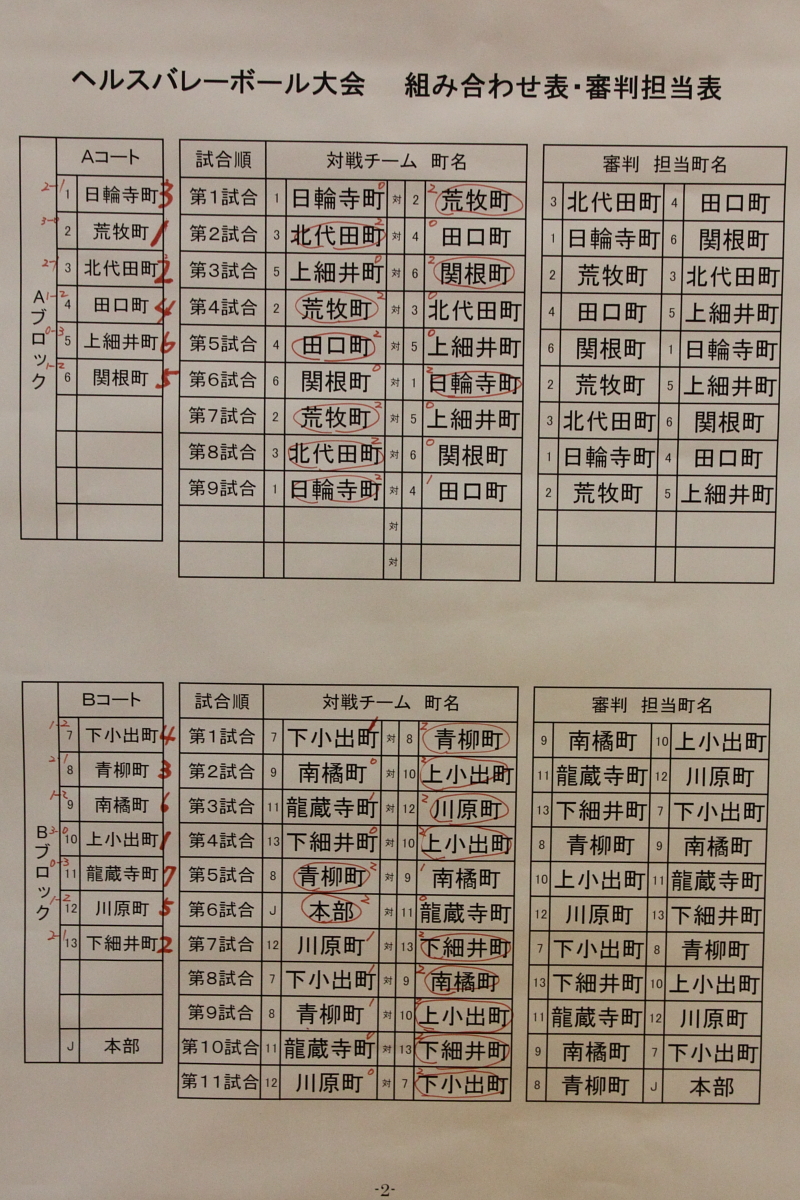 ヘルスバレーボール大会 組み合わせ表・審判担当表
Aブロック
Aコート 試合順 対戦チーム 町名 審判 担当町名
2-1 1 日輪寺町 3 第1試合 1 日輪寺町 0 対 2 2 荒牧町 3 北代田町 4 田口町
3-0 2 荒牧町 1 第2試合 3 北代田町 2 対 4 0 田口町 1 日輪寺町 6 関根町
2-1 3 北代田町 2 第3試合 5 上細井町 0 対 6 2 関根町 2 荒牧町 3 北代田町
1-2 4 田口町 4 第4試合 2 荒牧町 2 対 3 0 北代田町 4 田口町 5 上細井町
0-3 5 上細井町 6 第5試合 4 田口町 2 対 5 0 上細井町 6 関根町 1 日輪寺町
1-2 6 関根町 5 第6試合 6 関根町 0 対 1 2 日輪寺町 2 荒牧町 5 上細井町
第7試合 2 荒牧町 2 対 5 0 上細井町 3 北代田町 6 関根町
第8試合 3 北代田町 2 対 6 0 関根町 1 日輪寺町 4 田口町
第9試合 1 日輪寺町 2 対 4 1 田口町 2 荒牧町 5 上細井町
対
対
Bブロック
Bコート 試合順 対戦チーム 町名 審判 担当町名
1-2 7 下小出町 4 第1試合 7 下小出町 1 対 8 2 青柳町 9 南橘町 10 上小出町
2-1 8 青柳町 3 第2試合 9 南橘町 0 対 10 2 上小出町 11 龍蔵寺町 12 川原町
1-2 9 南橘町 6 第3試合 11 龍蔵寺町 1 対 12 2 川原町 13 下細井町 7 下小出町
3-0 10 上小出町 1 第4試合 13 下細井町 0 対 10 2 上小出町 8 青柳町 9 南橘町
0-3 11 龍蔵寺町 7 第5試合 8 青柳町 2 対 9 1 南橘町 10 上小出町 11 龍蔵寺町
1-2 12 川原町 5 第6試合 J 本部 2 対 11 0 龍蔵寺町 12 川原町 13 下細井町
2-1 13 下細井町 2 第7試合 12 川原町 1 対 13 2 下細井町 7 下小出町 8 青柳町
第8試合 7 下小出町 1 対 9 2 南橘町 13 下細井町 10 上小出町
第9試合 8 青柳町 1 対 10 2 上小出町 11 龍蔵寺町 12 川原町
J 本部 第10試合 11 龍蔵寺町 0 対 13 2 下細井町 9 南橘町 7 下小出町
第11試合 12 川原町 0 対 7 2 下小出町 8 青柳町 J 本部
-2-